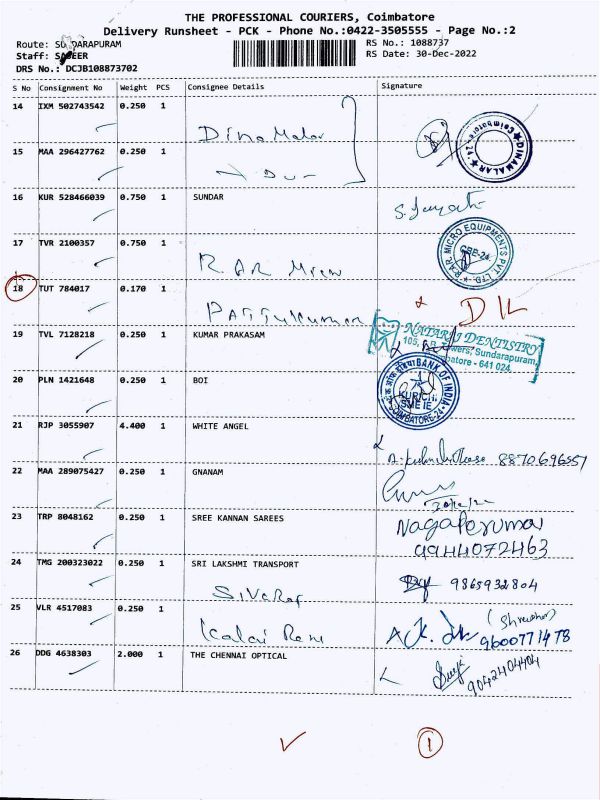 THE PROFESSIONAL COURIERS, Coimbatore
Delivery Runsheet - PCK - Phone No.:0422-3505555 - Page No.:2
Route: SUNDARAPURAM
RS No.: 1088737
Staff:
RS Date: 30-Dec-2022
DRS No.: DCJB108873702
S No Consignment No Weight PCS Consignee Details Signature
14 IXM 502743542 0.250 1 Dina Malar
DINAMALAR Coimbatore
15 MAA 296427762 0.250 1
16 KUR 528466039 0.750 1 SUNDAR
17 TVR 2100357 0.750 1 R.A.R Micro
R.A.R. MICRO EQUIPMENTS PVT. LTD. CBE-24
18 TUT 784017 0.170 1
DIL
19 TVL 7128218 0.250 1 KUMAR PRAKASAM
NATARAJ DENTISTRY
105, Towers, Sundarapuram,
641 024
20 PLN 1421648 0.250 1 BOI
BANK OF INDIA KURICHI SME IE COIMBATORE-24
21 RJP 3055907 4.400 1 WHITE ANGEL
8870696557
22 MAA 289075427 0.250 1 GNANAM
30/12/22
23 TRP 8048162 0.250 1 SREE KANNAN SAREES
Nagaperumal
9944072463
24 TMG 200323022 0.250 1 SRI LAKSHMI TRANSPORT
9865932804
SivaRaj
25 VLR 4517083 0.250 1 Kalai Rani
9600771478
26 DDG 4638303 2.000 1 THE CHENNAI OPTICAL
9042404404
1